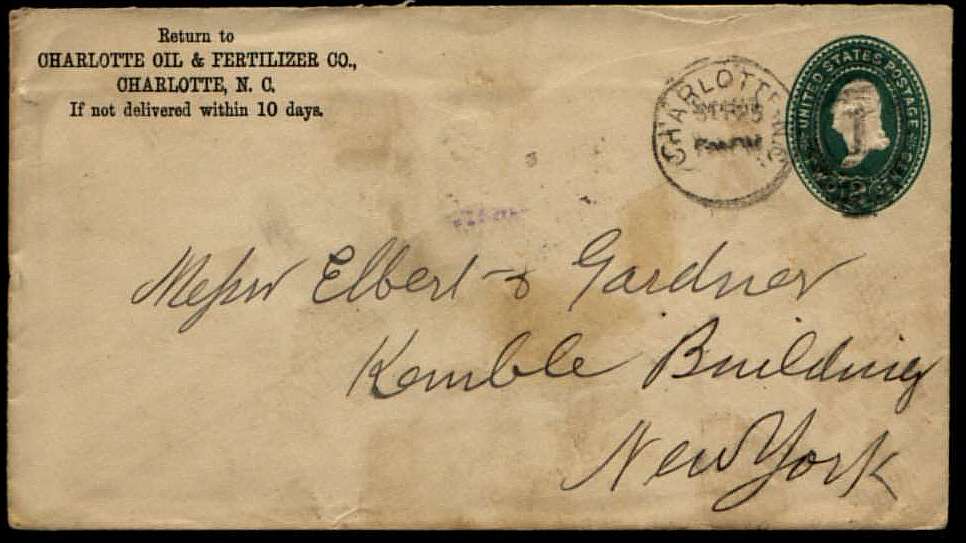 Return to
CHARLOTTE OIL & FERTILIZER CO.,
CHARLOTTE, N. C.
If not delivered within 10 days.
CHARLOTTE N.C.
UNITED STATES POSTAGE
TWO CENTS
2
Messrs Elbert & Gardner
Kemble Building
New York